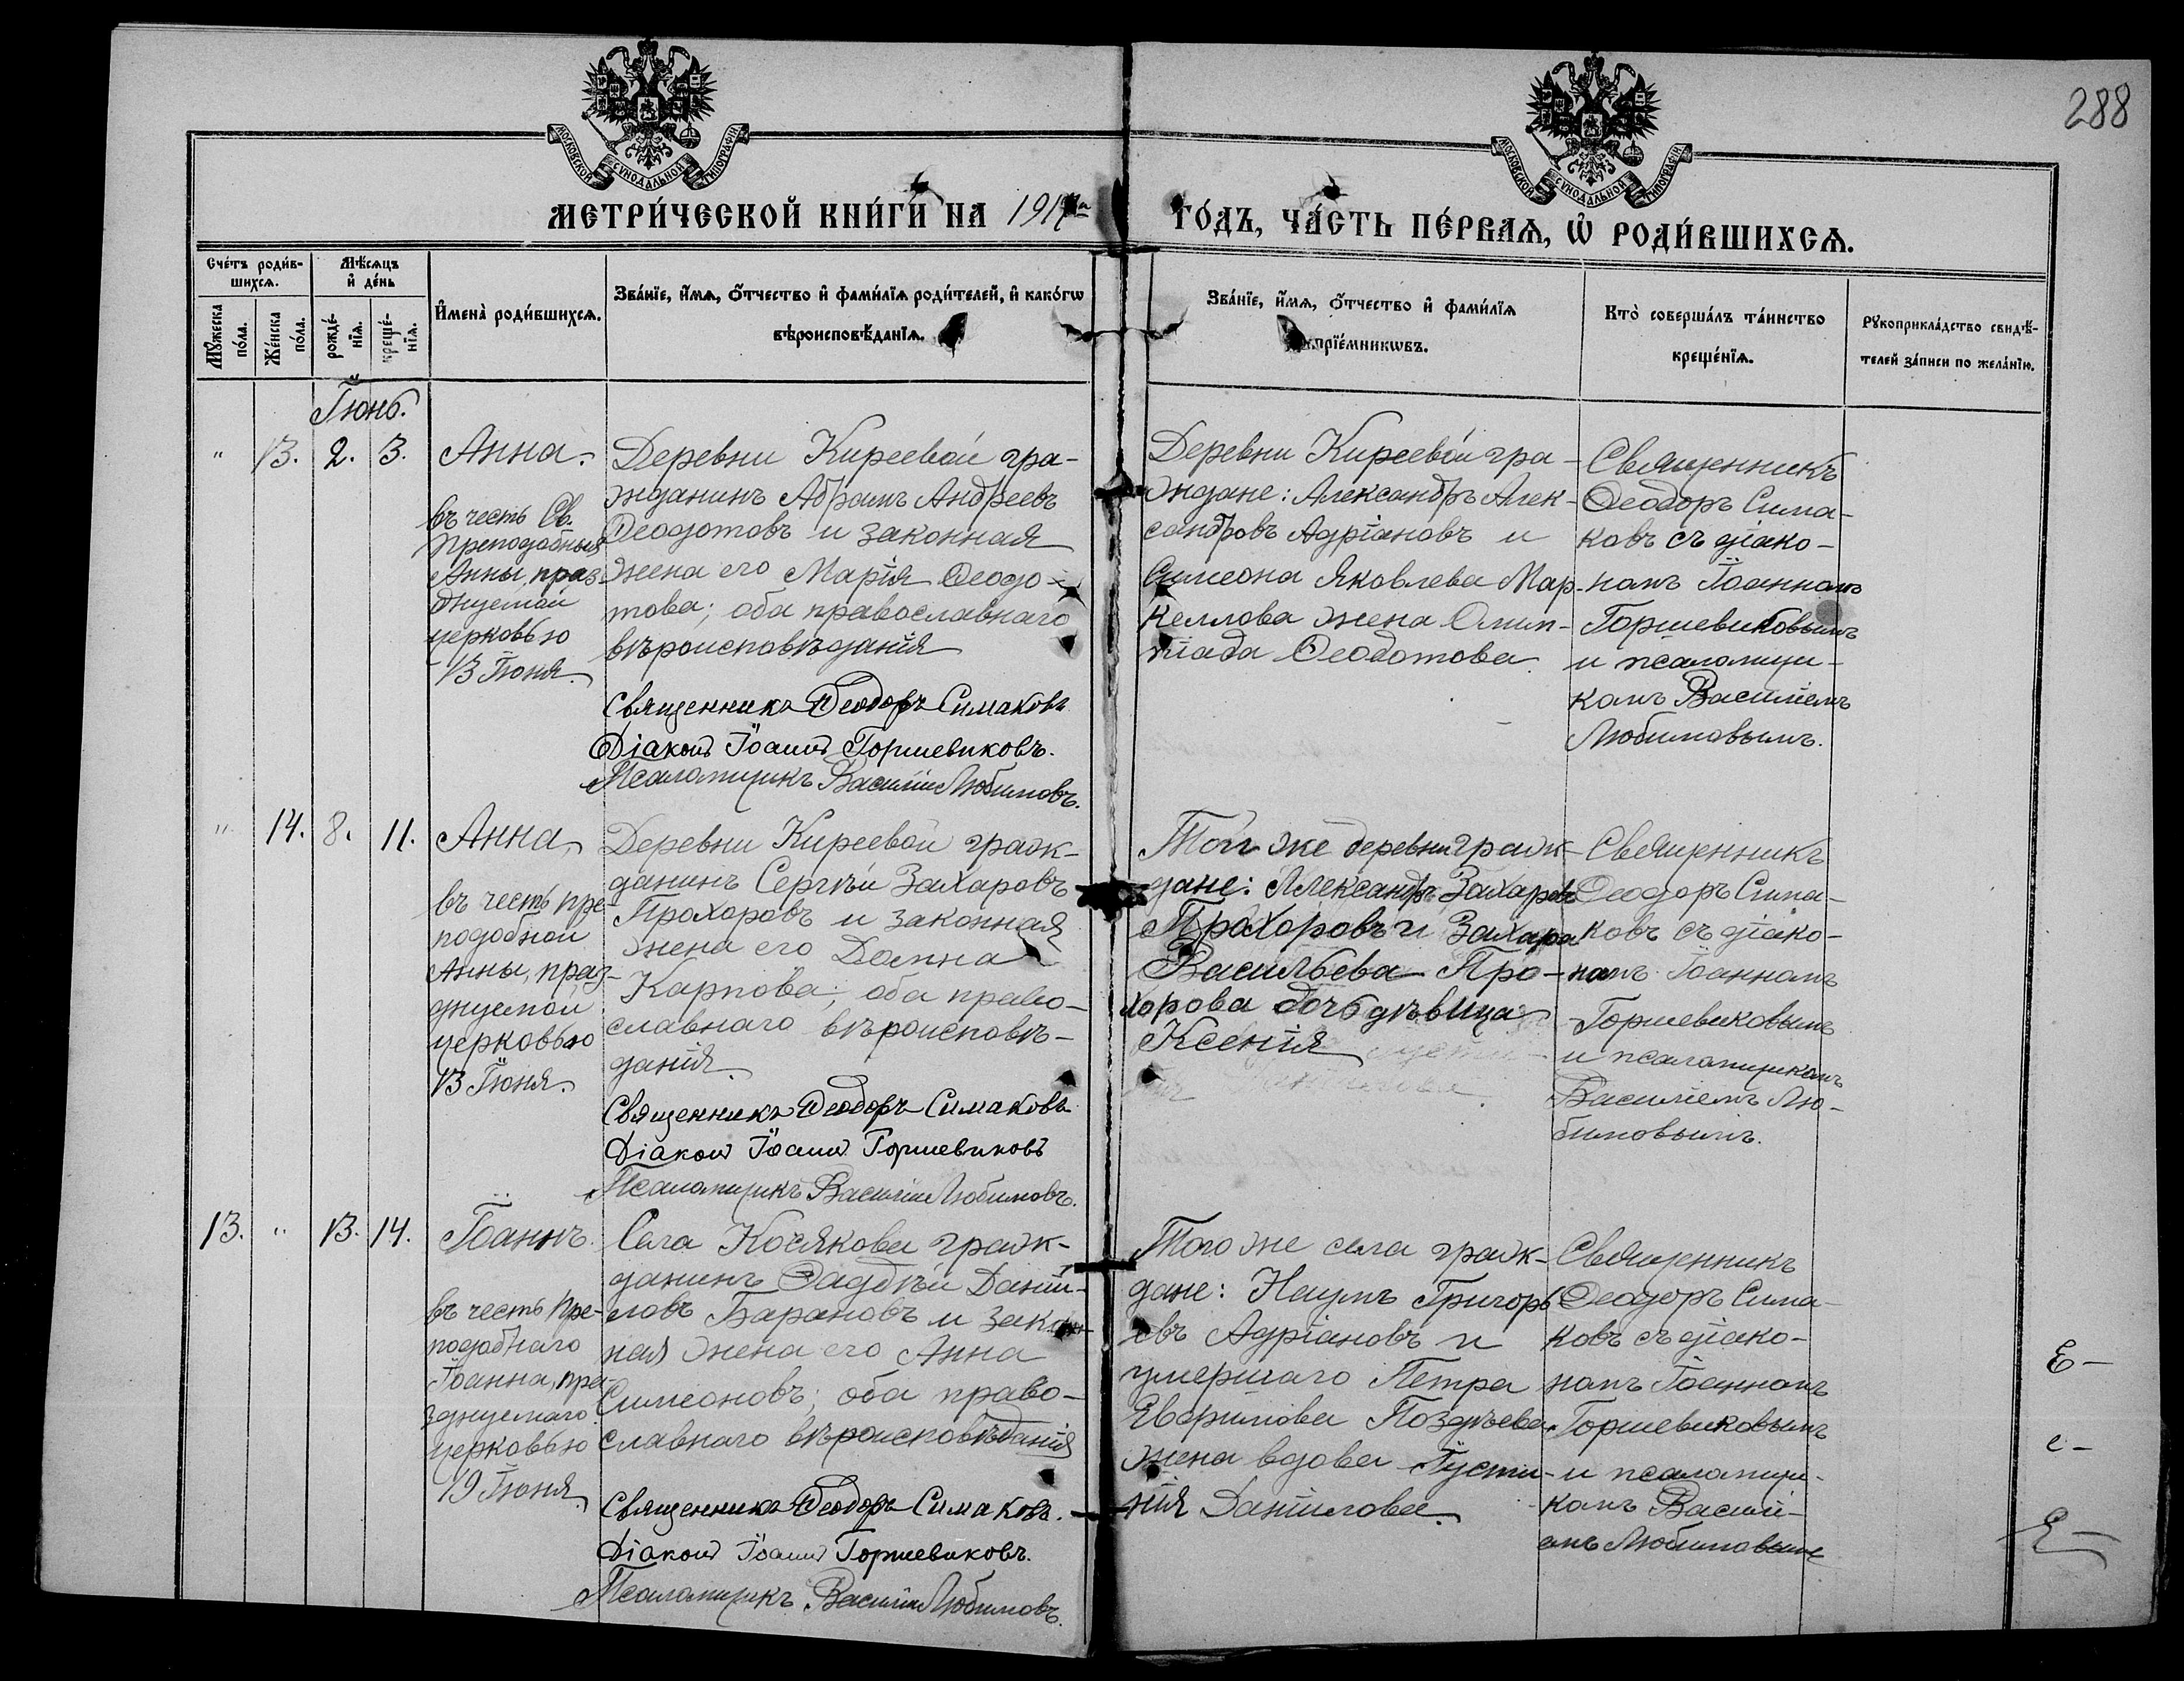 288
МОСКОВСКОЙ СѴНОДАЛЬНОЙ ТИПОГРАФІИ
МОСКОВСКОЙ СѴНОДАЛЬНОЙ ТИПОГРАФІИ
МЕТРИ́ЧЕСКОЙ КНИ́ГИ НА 1917 го́дъ, ча́сть пе́рваѧ, ѡ҆ роди́вшихсѧ.
Сче́тъ роди́в-
шихсѧ.
Мѣ́сѧцъ
и҆ де́нь
Мꙋ́жеска
по́ла.
Же́нска
по́ла.
рожде́-
нїѧ.
креще́-
нїѧ.
И҆мена̀ роди́вшихсѧ.
Зва́нїе, и҆́мѧ, ѻ҆́тчество и҆ фами́лїѧ роди́телей, и҆ како́гѡ
вѣроисповѣ́данїѧ.
Зва́нїе, и҆́мѧ, ѻ҆́тчество и҆ фами́лїѧ
прїе́мникѡвъ.
Кто̀ соверша́лъ та́инство
креще́нїѧ.
Рꙋкоприкла́дство свидѣ́-
телей за́писи по жела́нїю.
Іюнь.
" 13. 2. 3.
Анна.
въ честь Св.
Преподобныя
Анны, праз-
днуемой
церковью
13 Іюня.
Деревни Киреевой гра-
жданинъ Абрамъ Андреевъ
Ѳеодотовъ и законная
жена его Марія Ѳеодо-
това; оба православнаго
вѣроисповѣданія
Священникъ Ѳеодоръ Симаковъ
Діаконъ Іоаннъ Горшевиковъ.
Псаломщикъ Василій Любимовъ.
Деревни Киреевой гра-
ждане: Александръ Алек-
сандровъ Адріановъ и
Симеона Яковлева Мар-
келлова жена Олим-
піада Ѳеодотова.
Священникъ
Ѳеодоръ Сима-
ковъ съ діако-
номъ Іоанномъ
Горшевиковымъ
и псаломщи-
комъ Василіемъ
Любимовымъ.
" 14. 8. 11.
Анна,
въ честь пре-
подобной
Анны, праз-
днуемой
церковью
13 Іюня.
Деревни Киреевой граж-
данинъ Сергѣй Захаровъ
Прохоровъ и законная
жена его Домна
Карпова; оба право-
славнаго вѣроисповѣ-
данія.
Священникъ Ѳеодоръ Симаковъ
Діаконъ Іоаннъ Горшевиковъ
Псаломщикъ Василій Любимовъ.
Той же деревни граж-
дане: Александръ Захаровъ
Прохоровъ и Захара
Васильева Про-
хорова дочь дѣвица
Ксенія
Священникъ
Ѳеодоръ Сима-
ковъ съ діако-
номъ Іоанномъ
Горшевиковымъ
и псаломщикомъ
Василіемъ Лю-
бимовымъ.
13. " 13. 14.
Іоаннъ.
въ честь пре-
подобнаго
Іоанна, пра-
зднуемаго
церковью
19 Іюня.
Села Косякова граж-
данинъ Ѳаддѣй Дани-
ловъ Барановъ и закон-
ная жена его Анна
Симеоновъ; оба право-
славнаго вѣроисповѣданія
Священникъ Ѳеодоръ Симаковъ.
Діаконъ Іоаннъ Горшевиковъ.
Псаломщикъ Василій Любимовъ.
Того же села граж-
дане: Наумъ Григорь-
евъ Адріановъ и
умершаго Петра
Евфимова Поздѣева
жена вдова Іусти-
нія Данилова.
Священникъ
Ѳеодоръ Сима-
ковъ съ діако-
номъ Іоанномъ
Горшевиковымъ
и псаломщи-
комъ Василі-
емъ Любимовымъ